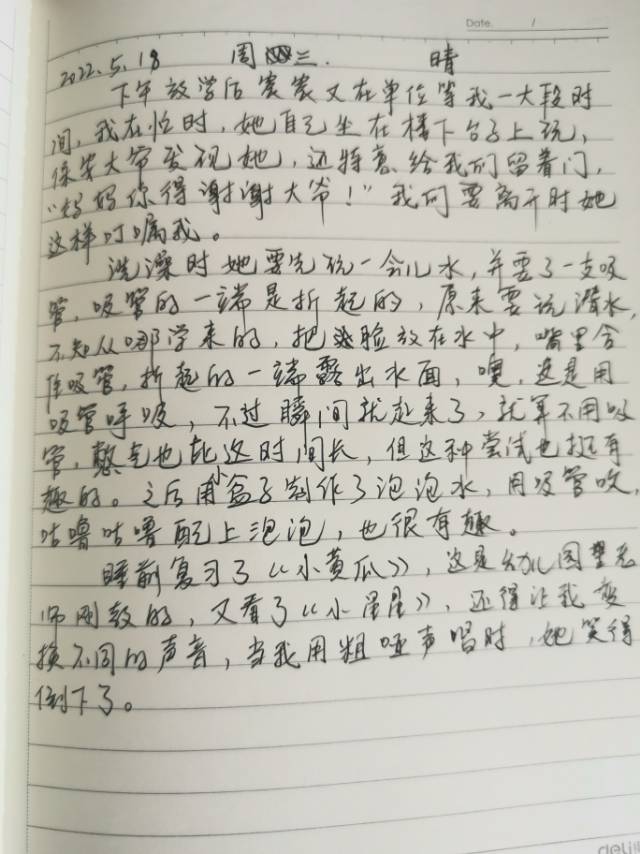 Date. /
2022.5.18 周三. 晴
下午放学后宸宸又在单位等我一大段时
间,我在忙时,她自己坐在楼下台子上玩,
保安大爷发现她,还特意给我们留着门,
“妈妈你得谢谢大爷!”我们要离开时她
这样叮嘱我。
洗澡时她要先玩一会儿水,并要了一支吸
管,吸管的一端是折起的,原来要玩潜水,
不知从哪学来的,把脸放在水中,嘴里含
住吸管,折起的一端露出水面,噢,这是用
吸管呼吸,不过瞬间就起来了,就算不用吸
管,憋气也比这时间长,但这种尝试也挺有
趣的。之后用小盒子制作了泡泡水,用吸管吹,
咕噜咕噜配上泡泡,也很有趣。
睡前复习了《小黄瓜》,这是幼儿园老
师刚教的,又看了《小星星》,还得让我变
换不同的声音,当我用粗哑声唱时,她笑得
倒下了。
deli